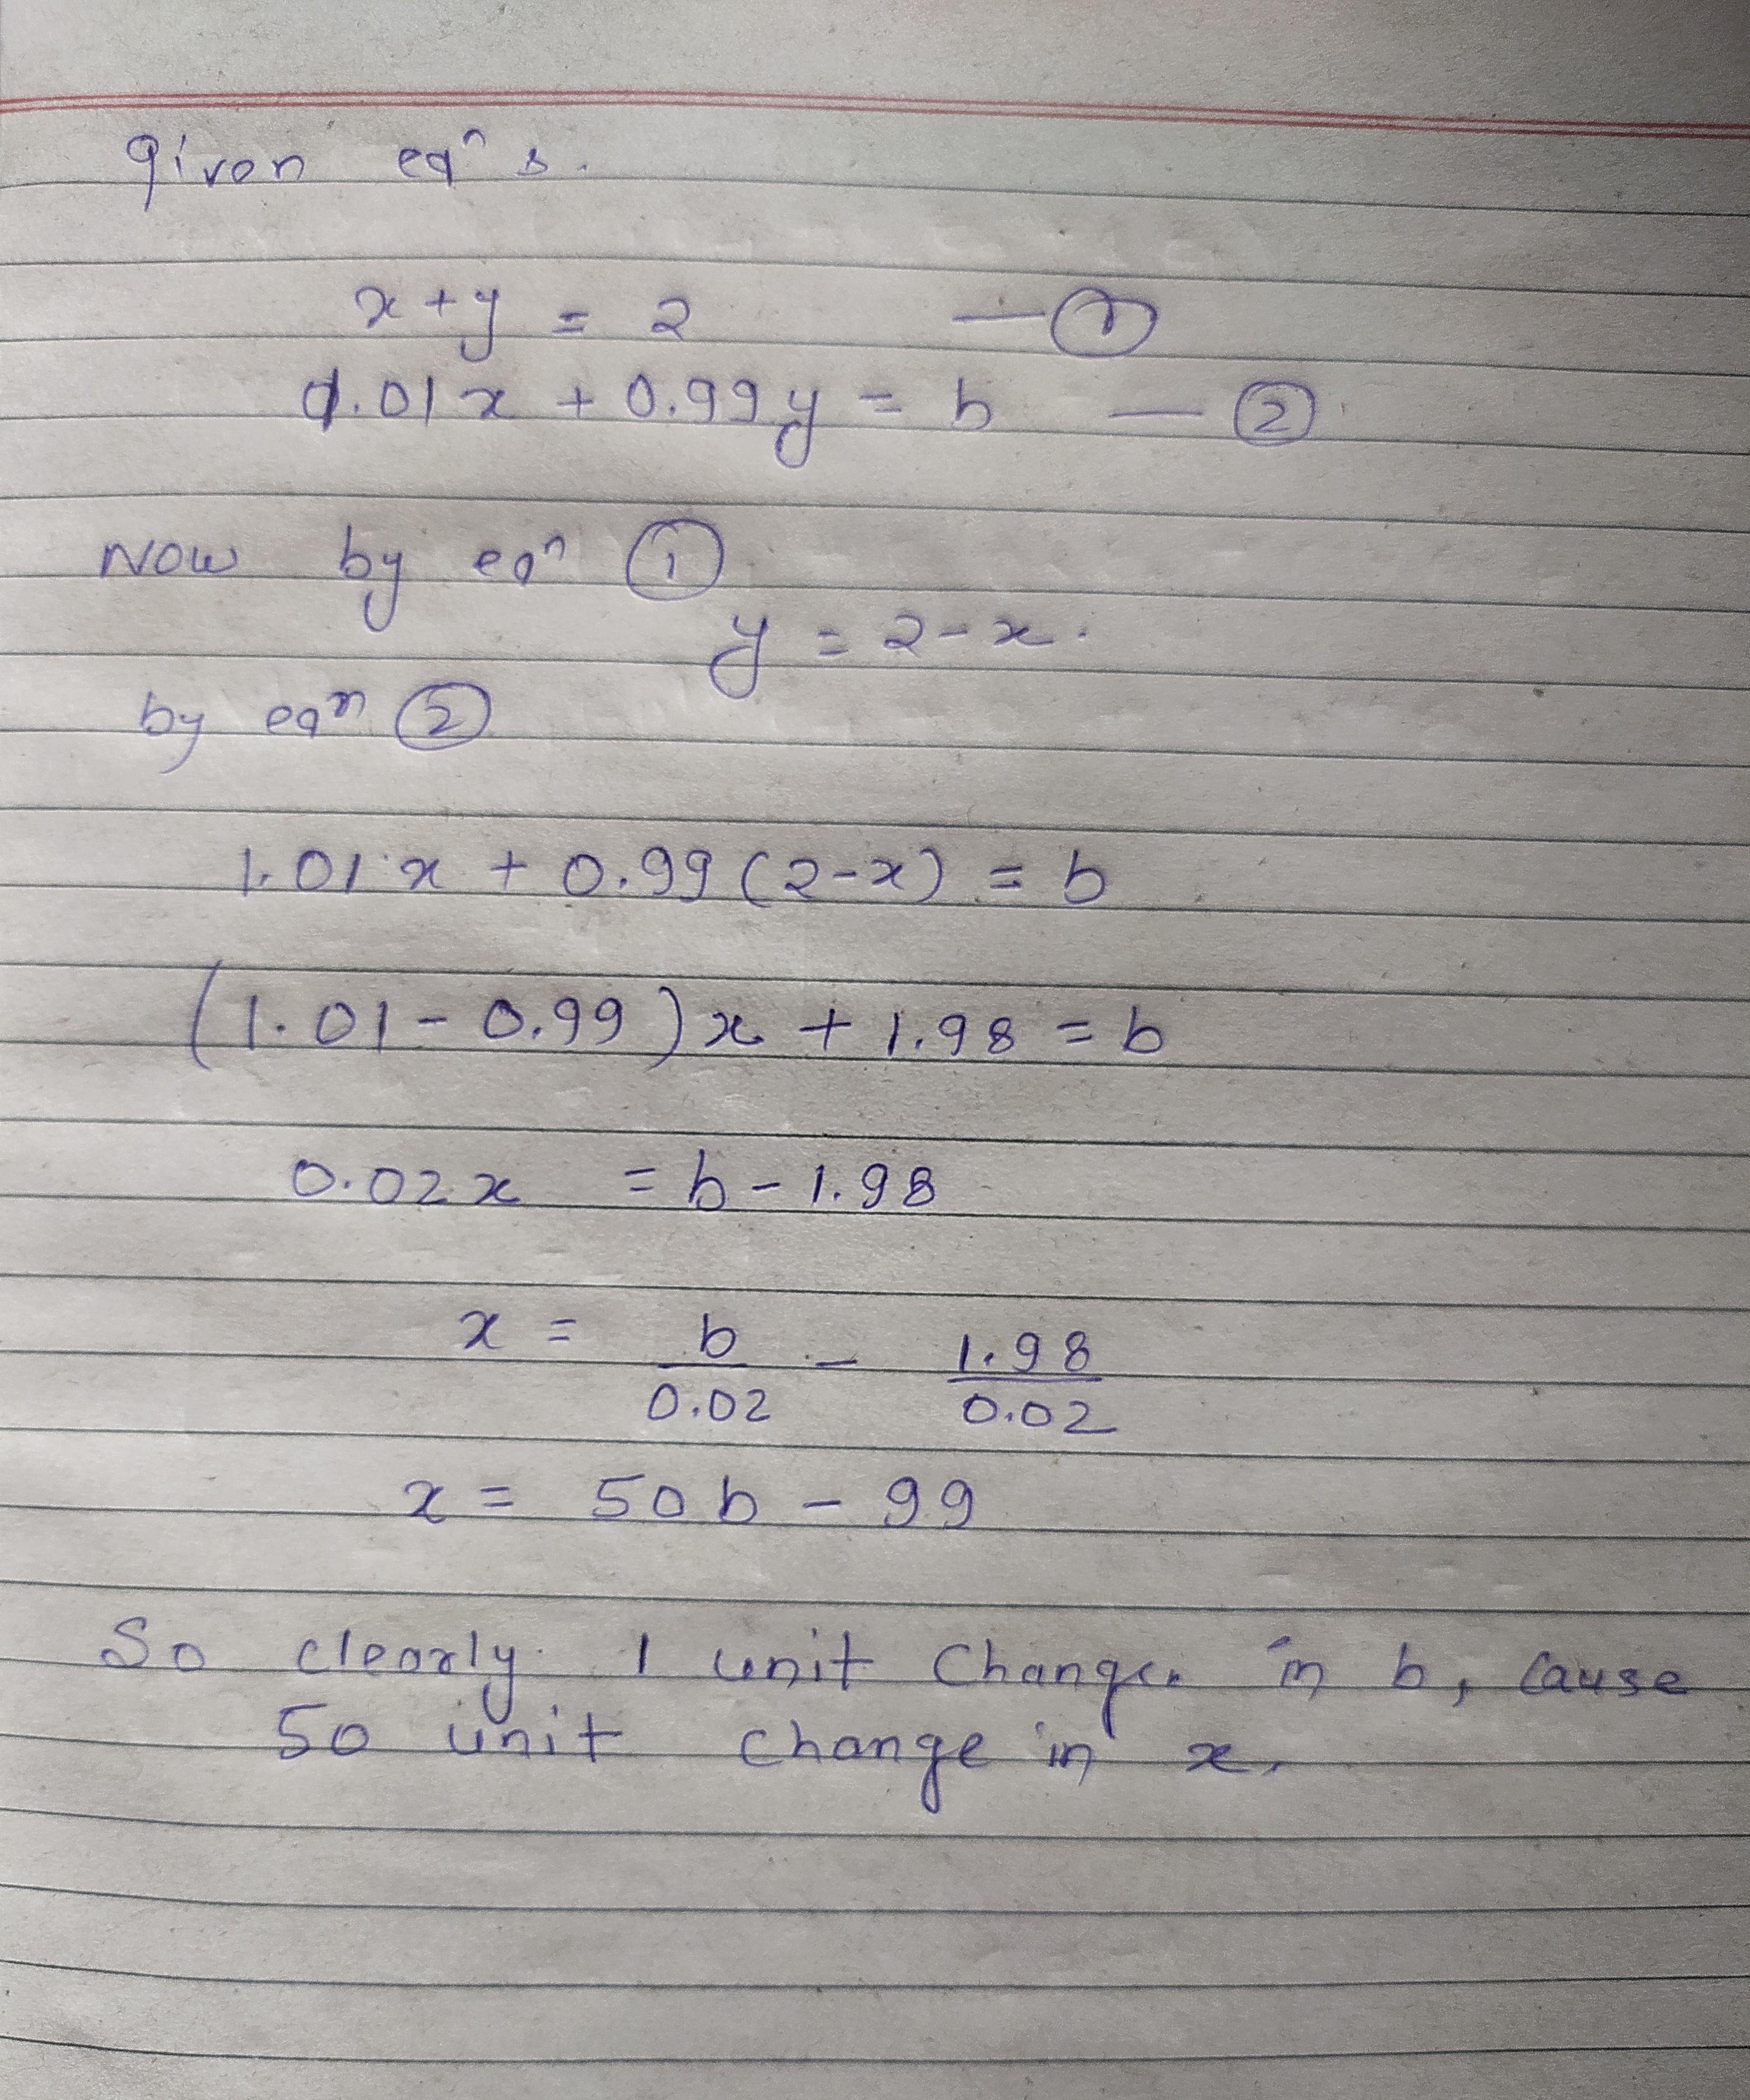 given eqⁿs.
x + y = 2 — ①
1.01x + 0.99y = b — ②
Now by eqⁿ ①
y = 2 - x.
by eqⁿ ②
1.01x + 0.99(2-x) = b
(1.01 - 0.99)x + 1.98 = b
0.02x = b - 1.98
x = b/0.02 - 1.98/0.02
x = 50b - 99
So clearly 1 unit change in b, cause
50 unit change in x.